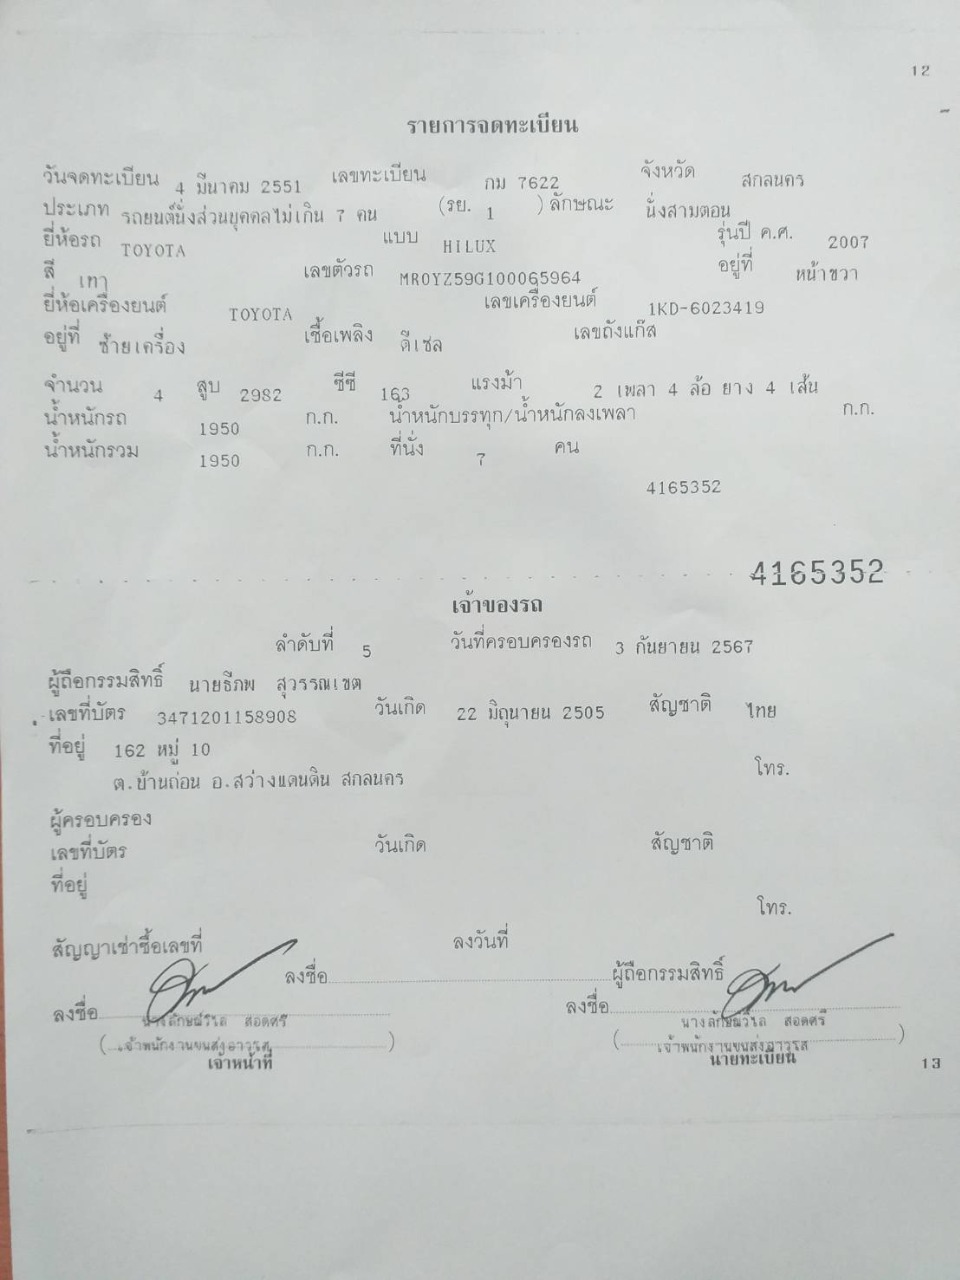 12
รายการจดทะเบียน
วันจดทะเบียน 4 มีนาคม 2551 เลขทะเบียน กม 7622 จังหวัด สกลนคร
ประเภท รถยนต์นั่งส่วนบุคคลไม่เกิน 7 คน (รย. 1 ) ลักษณะ นั่งสามตอน
ยี่ห้อรถ TOYOTA แบบ HILUX รุ่นปี ค.ศ. 2007
สี เทา เลขตัวรถ MR0YZ59G100065964 อยู่ที่ หน้าขวา
ยี่ห้อเครื่องยนต์ TOYOTA เลขเครื่องยนต์ 1KD-6023419
อยู่ที่ ซ้ายเครื่อง เชื้อเพลิง ดีเซล เลขถังแก๊ส
จำนวน 4 สูบ 2982 ซีซี 163 แรงม้า 2 เพลา 4 ล้อ ยาง 4 เส้น
น้ำหนักรถ 1950 ก.ก. น้ำหนักบรรทุก/น้ำหนักลงเพลา ก.ก.
น้ำหนักรวม 1950 ก.ก. ที่นั่ง 7 คน
4165352
4165352
เจ้าของรถ
ลำดับที่ 5 วันที่ครอบครองรถ 3 กันยายน 2567
ผู้ถือกรรมสิทธิ์ นายธีภพ สุวรรณเขต
เลขที่บัตร 3471201158908 วันเกิด 22 มิถุนายน 2505 สัญชาติ ไทย
ที่อยู่ 162 หมู่ 10
ต.บ้านถ่อน อ.สว่างแดนดิน สกลนคร โทร.
ผู้ครอบครอง
เลขที่บัตร วันเกิด สัญชาติ
ที่อยู่
โทร.
สัญญาเช่าซื้อเลขที่ ลงวันที่
ลงชื่อ ผู้ถือกรรมสิทธิ์
ลงชื่อ ลงชื่อ
นางลักษณ์วิไล สอดศรี นางลักษณ์วิไล สอดศรี
(เจ้าพนักงานขนส่งอาวุโส) (เจ้าพนักงานขนส่งอาวุโส)
เจ้าหน้าที่ นายทะเบียน
13